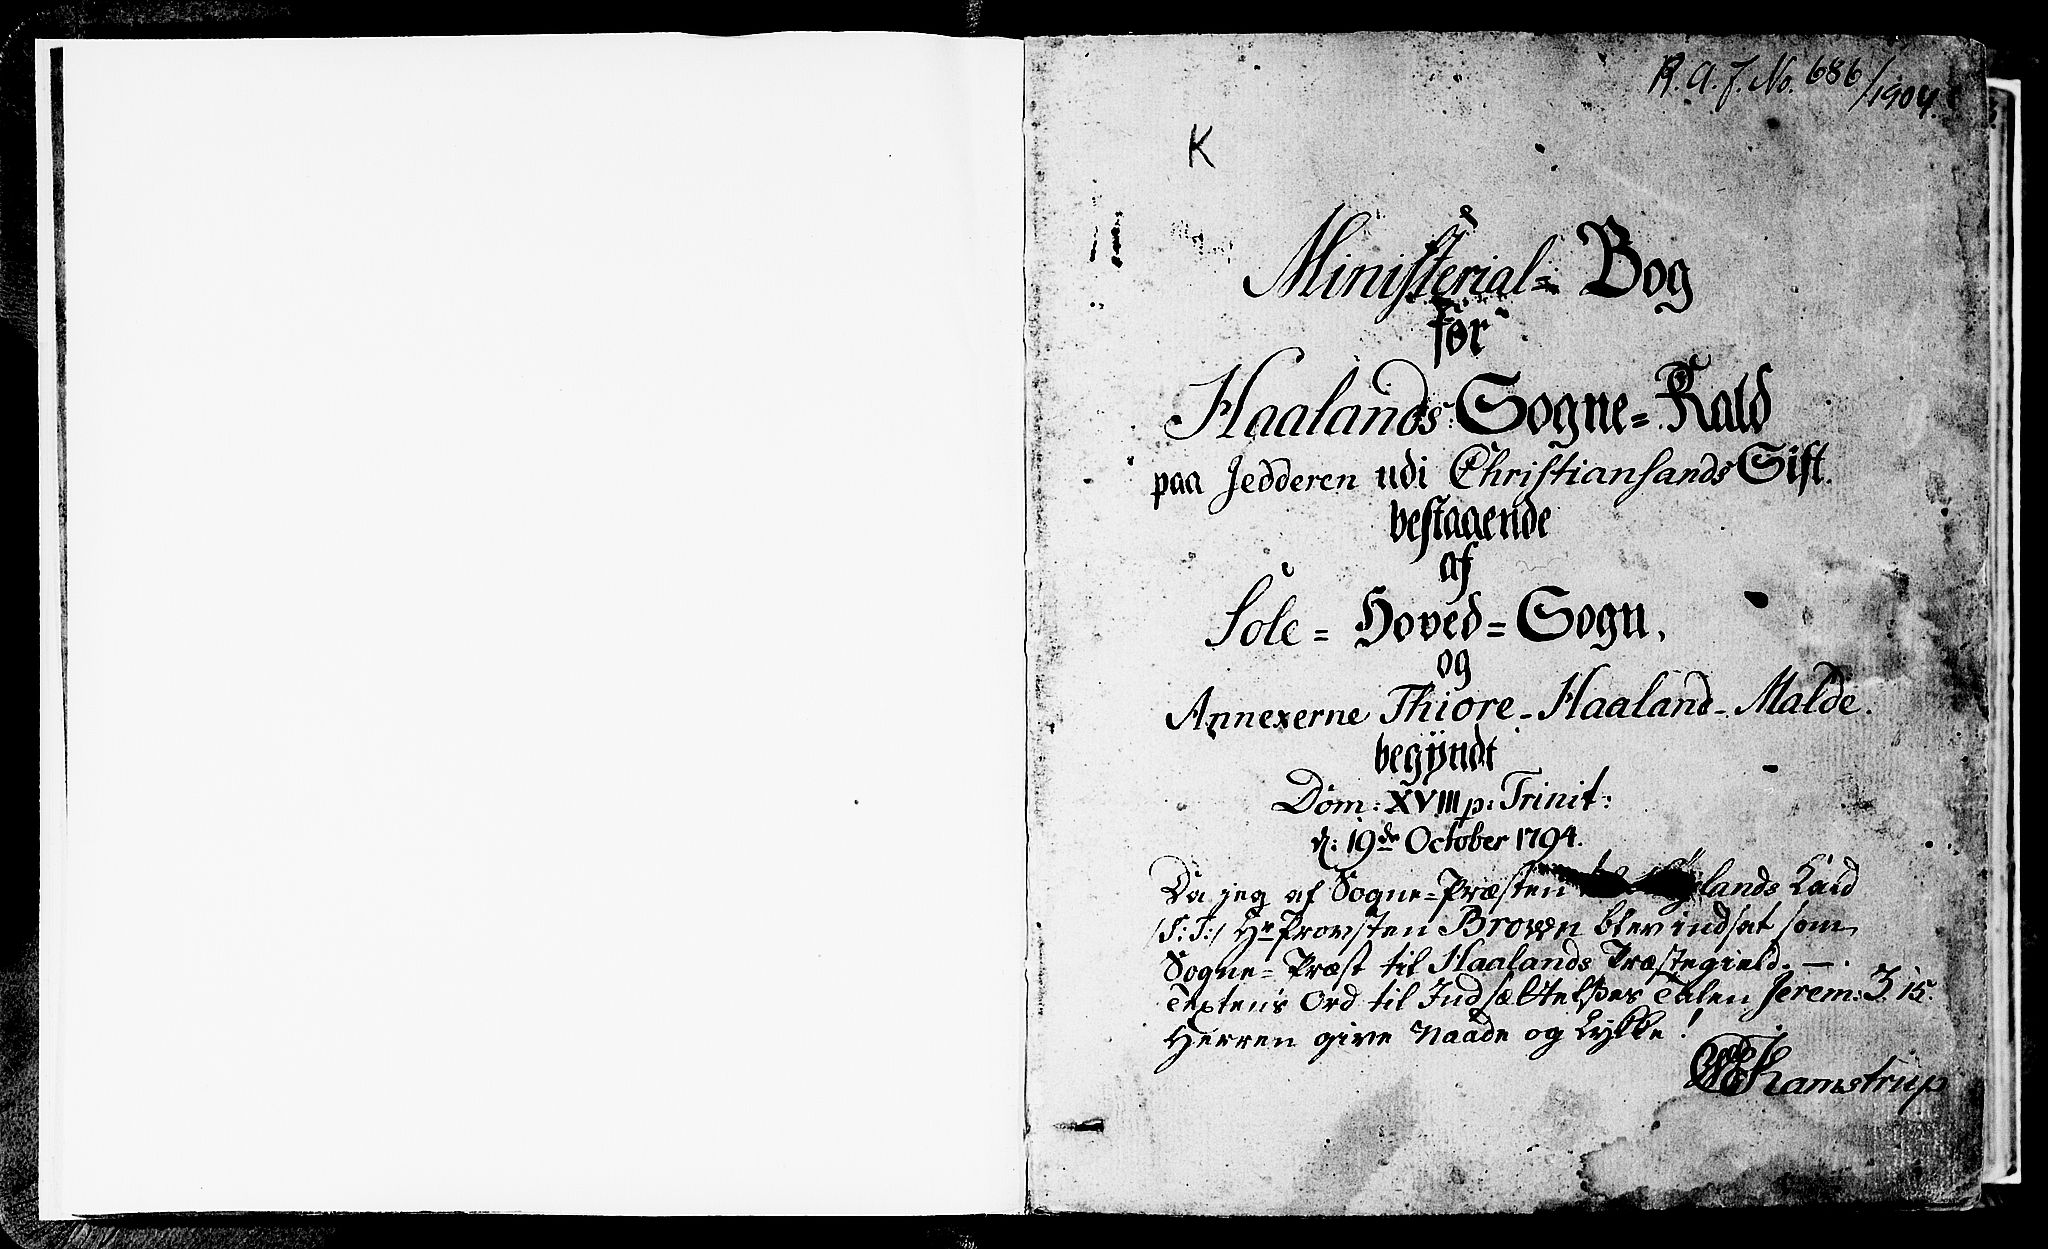 R. A. J. No. 686/1904.
K
Ministerial= Bog
for
Haalands Sogne=Kald
paa Jedderen udi Christiansands Stift.
bestaaende
af
Sole= Hoved=Sogn,
og
Annexerne Thiore-Haaland-Malde.
begÿndt
Dom: XVIII p: Trinit:
d: 19de October 1794.
Da jeg af Sogne=Præsten lands Kald
/S: T:/ Hr Provsten Brown blev indsat som
Sogne=Præst til Haalands Præstegield. —.
Textens Ord til Indsættelses Talen Jerem: 3. 15.
Herren give Naade og Lykke!
Kamstrup